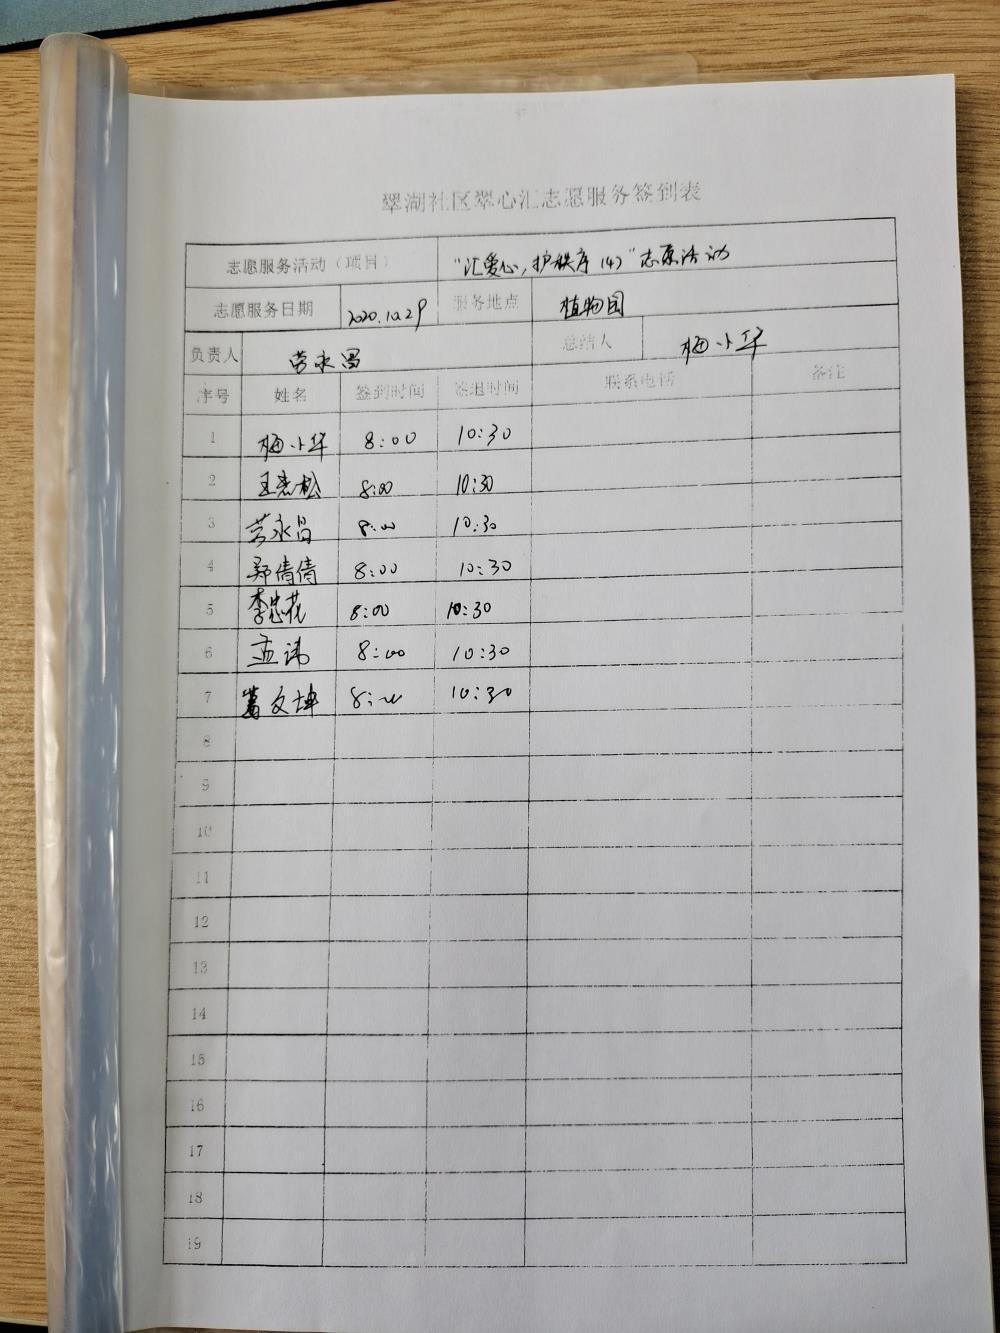 翠湖社区翠心汇志愿服务签到表
志愿服务活动（项目） “汇爱心，护秩序（4）”志愿活动
志愿服务日期 2020.10.29 服务地点 植物园
负责人 劳永昌 总结人 梅小华
序号 姓名 签到时间 签退时间 联系电话 备注
1 梅小华 8:00 10:30
2 王志松 8:00 10:30
3 劳永昌 8:00 10:30
4 郑倩倩 8:00 10:30
5 李忠花 8:00 10:30
6 孟讳 8:00 10:30
7 葛文坤 8:00 10:30
8
9
10
11
12
13
14
15
16
17
18
19